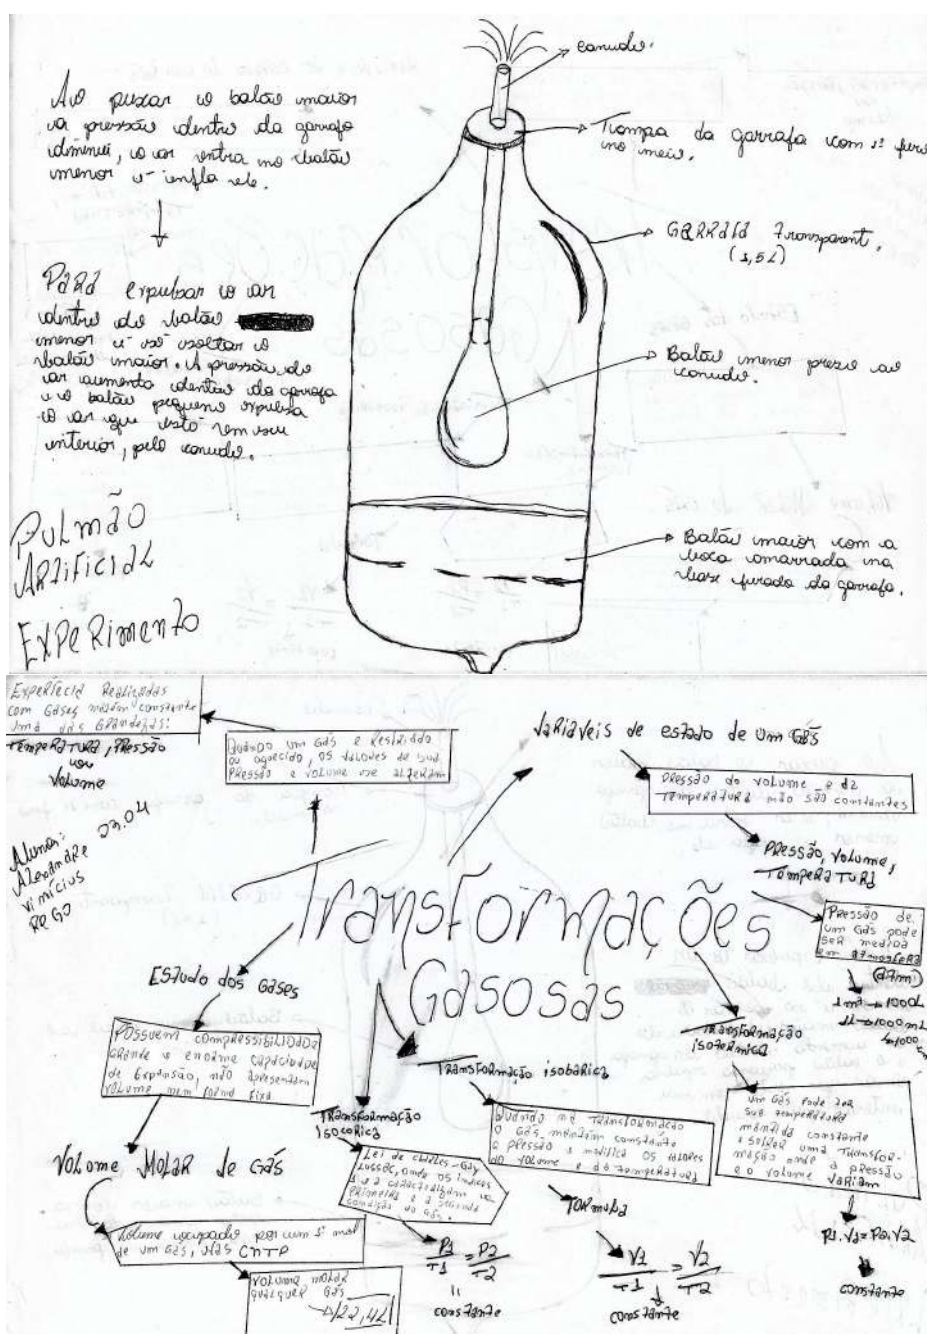 Ao puxar o balão maior
a pressão dentro da garrafa
diminui, o ar entra no balão
menor e infla ele.
Para expulsar o ar
dentro do balão
menor é só soltar o
balão maior. A pressão do
ar aumenta dentro da garrafa
e o balão pequeno expulsa
o ar que está em seu
interior, pelo canudo.
Pulmão
Artificial
Experimento
canudo.
Tampa da garrafa com 1 furo
no meio.
Garrafa transparent.
(1,5L)
Balão menor preso ao
canudo.
Balão maior com a
boca amarrada na
base furada da garrafa.
Realizadas
com gases mantém constante
uma das grandezas:
Temperatura, Pressão
ou
Volume
Aluno:
Alexandre
Vinícius
Rego
Quando um gás é resfriado
ou aquecido, os valores de sua
pressão e volume se alteram
Variáveis de estado de um gás
Pressão do volume e da
temperatura não são constantes
Pressão, volume,
temperatura
Pressão de
um gás pode
ser medida
em atmosfera
(atm)
1m³ → 1000L
1L → 1000mL
Transformações
Gasosas
Estudo dos gases
Possuem compressibilidade
grande e enorme capacidade
de expansão, não apresentam
volume nem forma fixa.
Volume Molar de gás
Volume ocupado por um 1 mol
de um gás, nas CNTP
Volume molar
qualquer gás
→ 22,4L
Transformação
isocorica
Lei de Charles-Gay
Lussac, onde os índices
1 e 2 caracterizam a
primeira e a segunda
condição do gás.
P1/T1 = P2/T2
=
constante
Transformação isobárica
Quando na transformação
o gás mantém constante
a pressão e modifica os valores
do volume e da temperatura
Formula
V1/T1 = V2/T2
constante
Transformação
isotermica
um gás pode ter
sua temperatura
mantida constante
e sofrer uma transfor-
mação onde a pressão
e o volume variam
P1.V1=P2.V2
constante